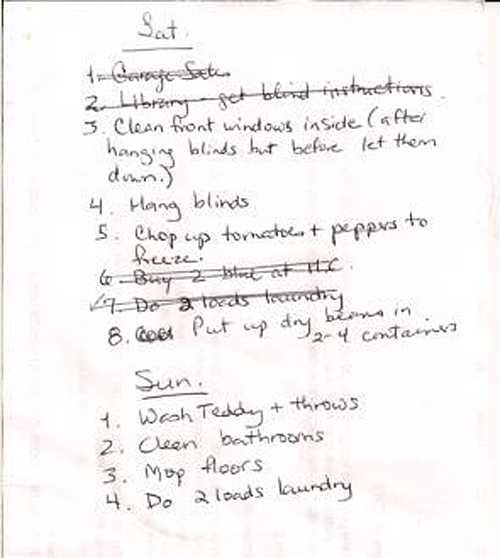 Sat.
1. Garage Sale
2. Library - get blind instructions.
3. Clean front windows inside (after
hanging blinds but before let them
down.)
4. Hang blinds
5. Chop up tomatoes + peppers to
freeze.
6. Buy 2 at
7. Do 2 loads laundry
8. Put up dry beans in
2-4 containers
Sun.
1. Wash Teddy + throws
2. Clean bathrooms
3. Mop floors
4. Do 2 loads laundry